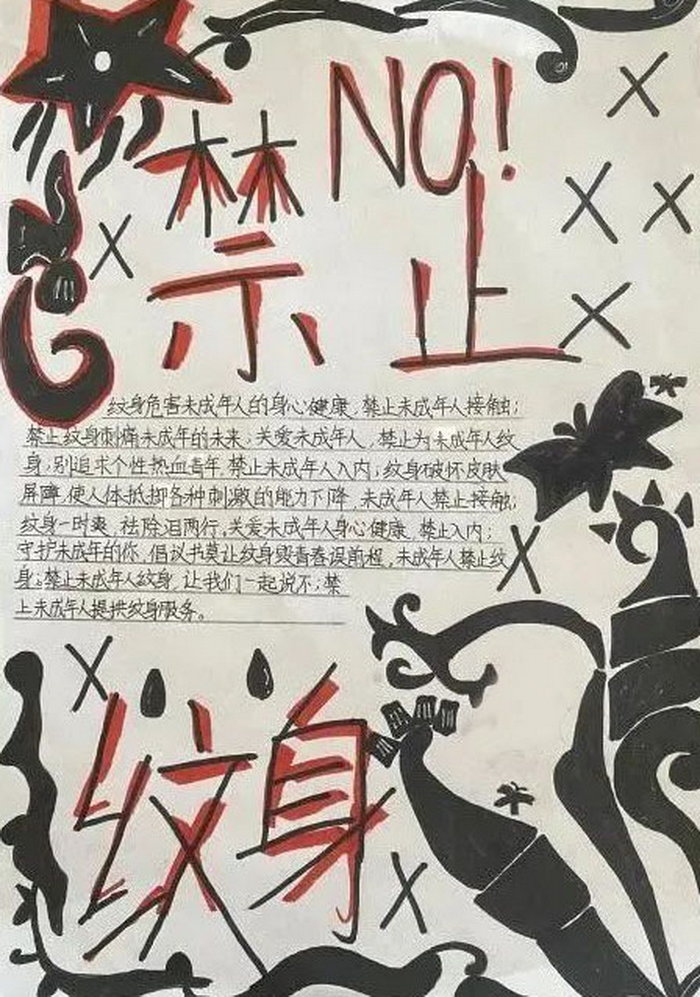 NO!
禁止
纹身危害未成年人的身心健康,禁止未成年人接触;
禁止纹身刺痛未成年的未来;关爱未成年人,禁止为未成年人纹
身;别追求个性热血青年,禁止未成年人入内;纹身破坏皮肤
屏障,使人体抵抑各种刺激的能力下降,未成年人禁止接触;
纹身一时爽,祛除泪两行,关爱未成年人身心健康,禁止入内;
守护未成年的你,倡议书莫让纹身毁青春误前程,未成年人禁止纹
身;禁止未成年人纹身,让我们一起说不;禁
止未成年人提供纹身服务。
纹身